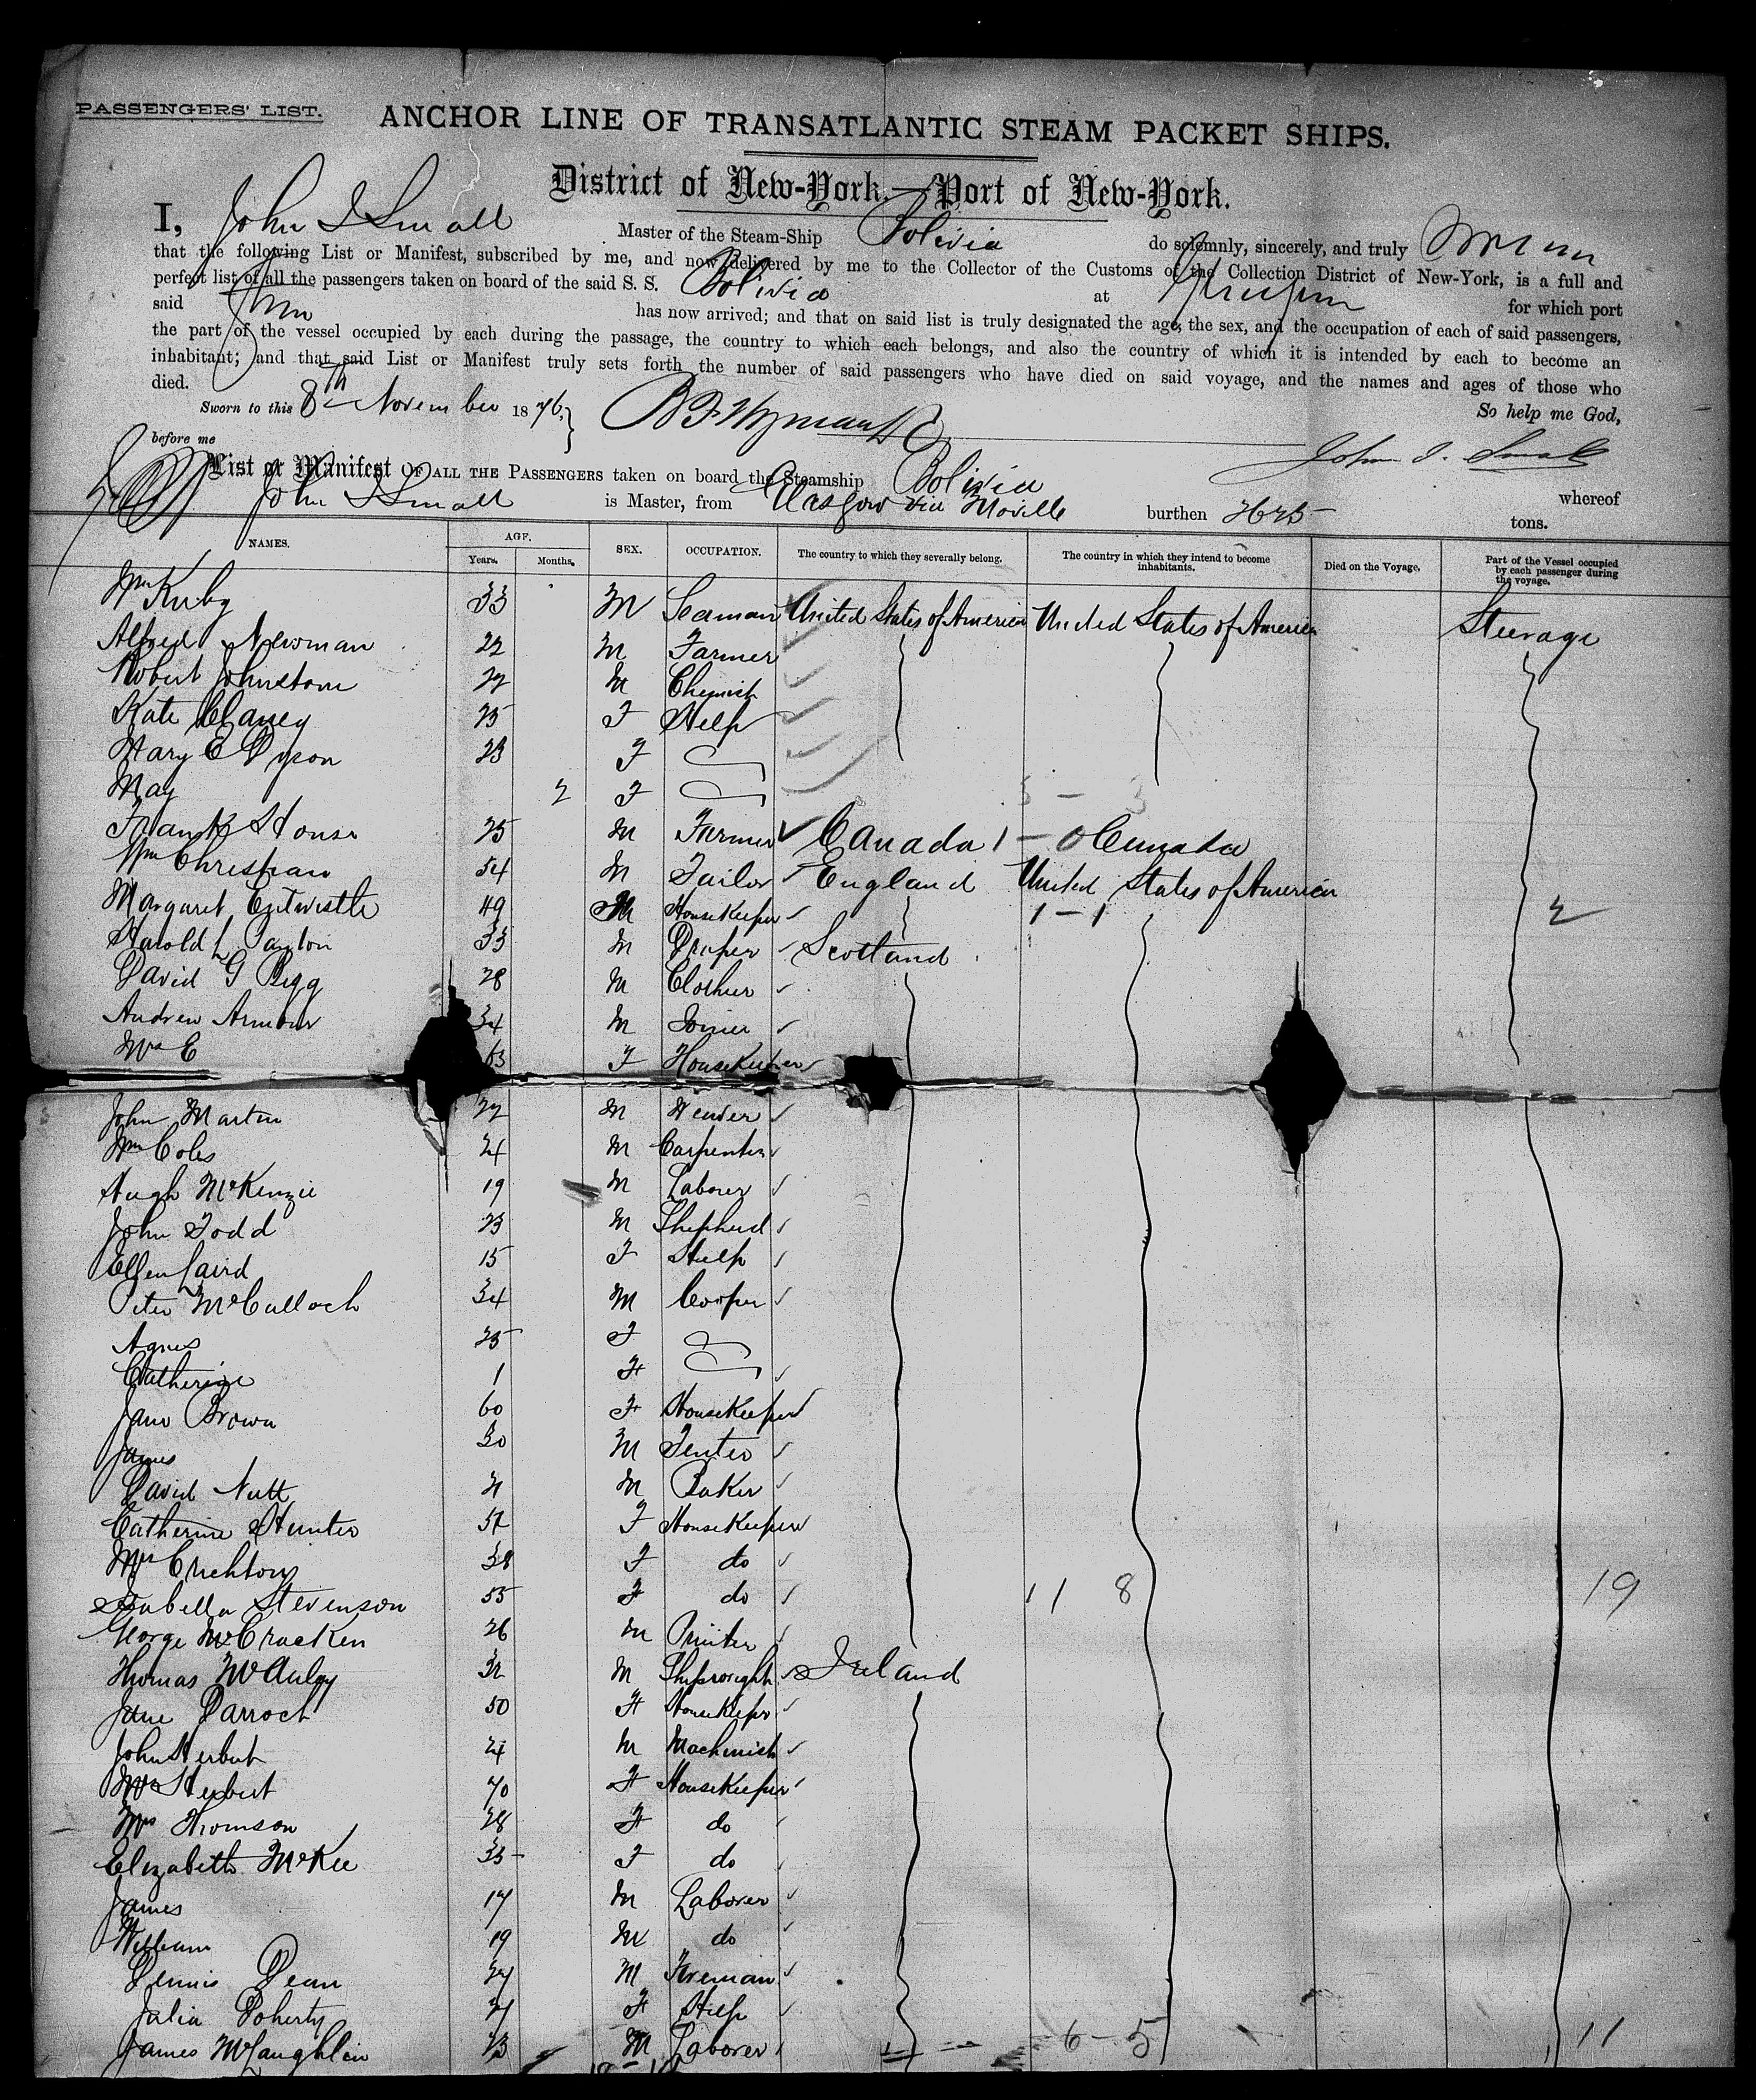 PASSENGERS' LIST.
ANCHOR LINE OF TRANSATLANTIC STEAM PACKET SHIPS.
District of New-York.—Port of New-York.
I, John I Small Master of the Steam-Ship Bolivia do solemnly, sincerely, and truly
that the following List or Manifest, subscribed by me, and now delivered by me to the Collector of the Customs of the Collection District of New-York, is a full and
perfect list of all the passengers taken on board of the said S. S. Bolivia at Glasgow for which port
said has now arrived; and that on said list is truly designated the age, the sex, and the occupation of each of said passengers,
the part of the vessel occupied by each during the passage, the country to which each belongs, and also the country of which it is intended by each to become an
inhabitant; and that said List or Manifest truly sets forth the number of said passengers who have died on said voyage, and the names and ages of those who
died. So help me God,
Sworn to this 8th November 1876,
before me John I. Small
List or Manifest OF ALL THE PASSENGERS taken on board the Steamship Bolivia whereof
John I Small is Master, from Glasgow via Moville burthen tons.
NAMES. AGE. Years. Months. SEX. OCCUPATION. The country to which they severally belong. The country in which they intend to become inhabitants. Died on the Voyage. Part of the Vessel occupied by each passenger during the voyage.
Wm Kirby 33 M Seaman United States of America United States of America Steerage
Alfred Newman 22 M Farmer
Robert Johnstone 22 M Chemist
Kate Clancy 25 F Help
Mary E Dyson 23 F
May 2 F
Frank House 25 M Farmer Canada 1 - 0 Canada
Wm Christian 54 M Tailor England United States of America
Margaret Entwistle 49 F Housekeeper 1 - 1 2
Harold L 33 M Draper Scotland
David G Bigg 28 M Clothier
Andrew Armour 34 M Joiner
Mrs E 63 F Housekeeper
John Martin 22 M
Wm Coles 24 M Carpenter
Hugh McKenzie 19 M Laborer
John Todd 23 M Shepherd
Ellen Laird 15 F Help
Peter McCulloch 34 M Cooper
Agnes 25 F
Catherine 1 F
Jane Brown 60 F Housekeeper
James 30 M Tenter
David Nutt 21 M Baker
Catherine Hunter 52 F Housekeeper
Mrs Crichton 38 F do
Isabella Stevenson 55 F do 11 8 19
George McCracken 26 M Printer
Thomas McAulay 32 M Shipwright Ireland
Jane Darroch 50 F Housekeeper
John Herbert 24 M Machinist
Mrs Herbert 70 F Housekeeper
Mrs Thomson 28 F do
Elizabeth McKee 35 F do
James 17 M Laborer
William 19 M do
Dennis Dean 27 M Fireman
Julia Doherty 21 F Help
James McLaughlin 23 M Laborer 6 - 5 11